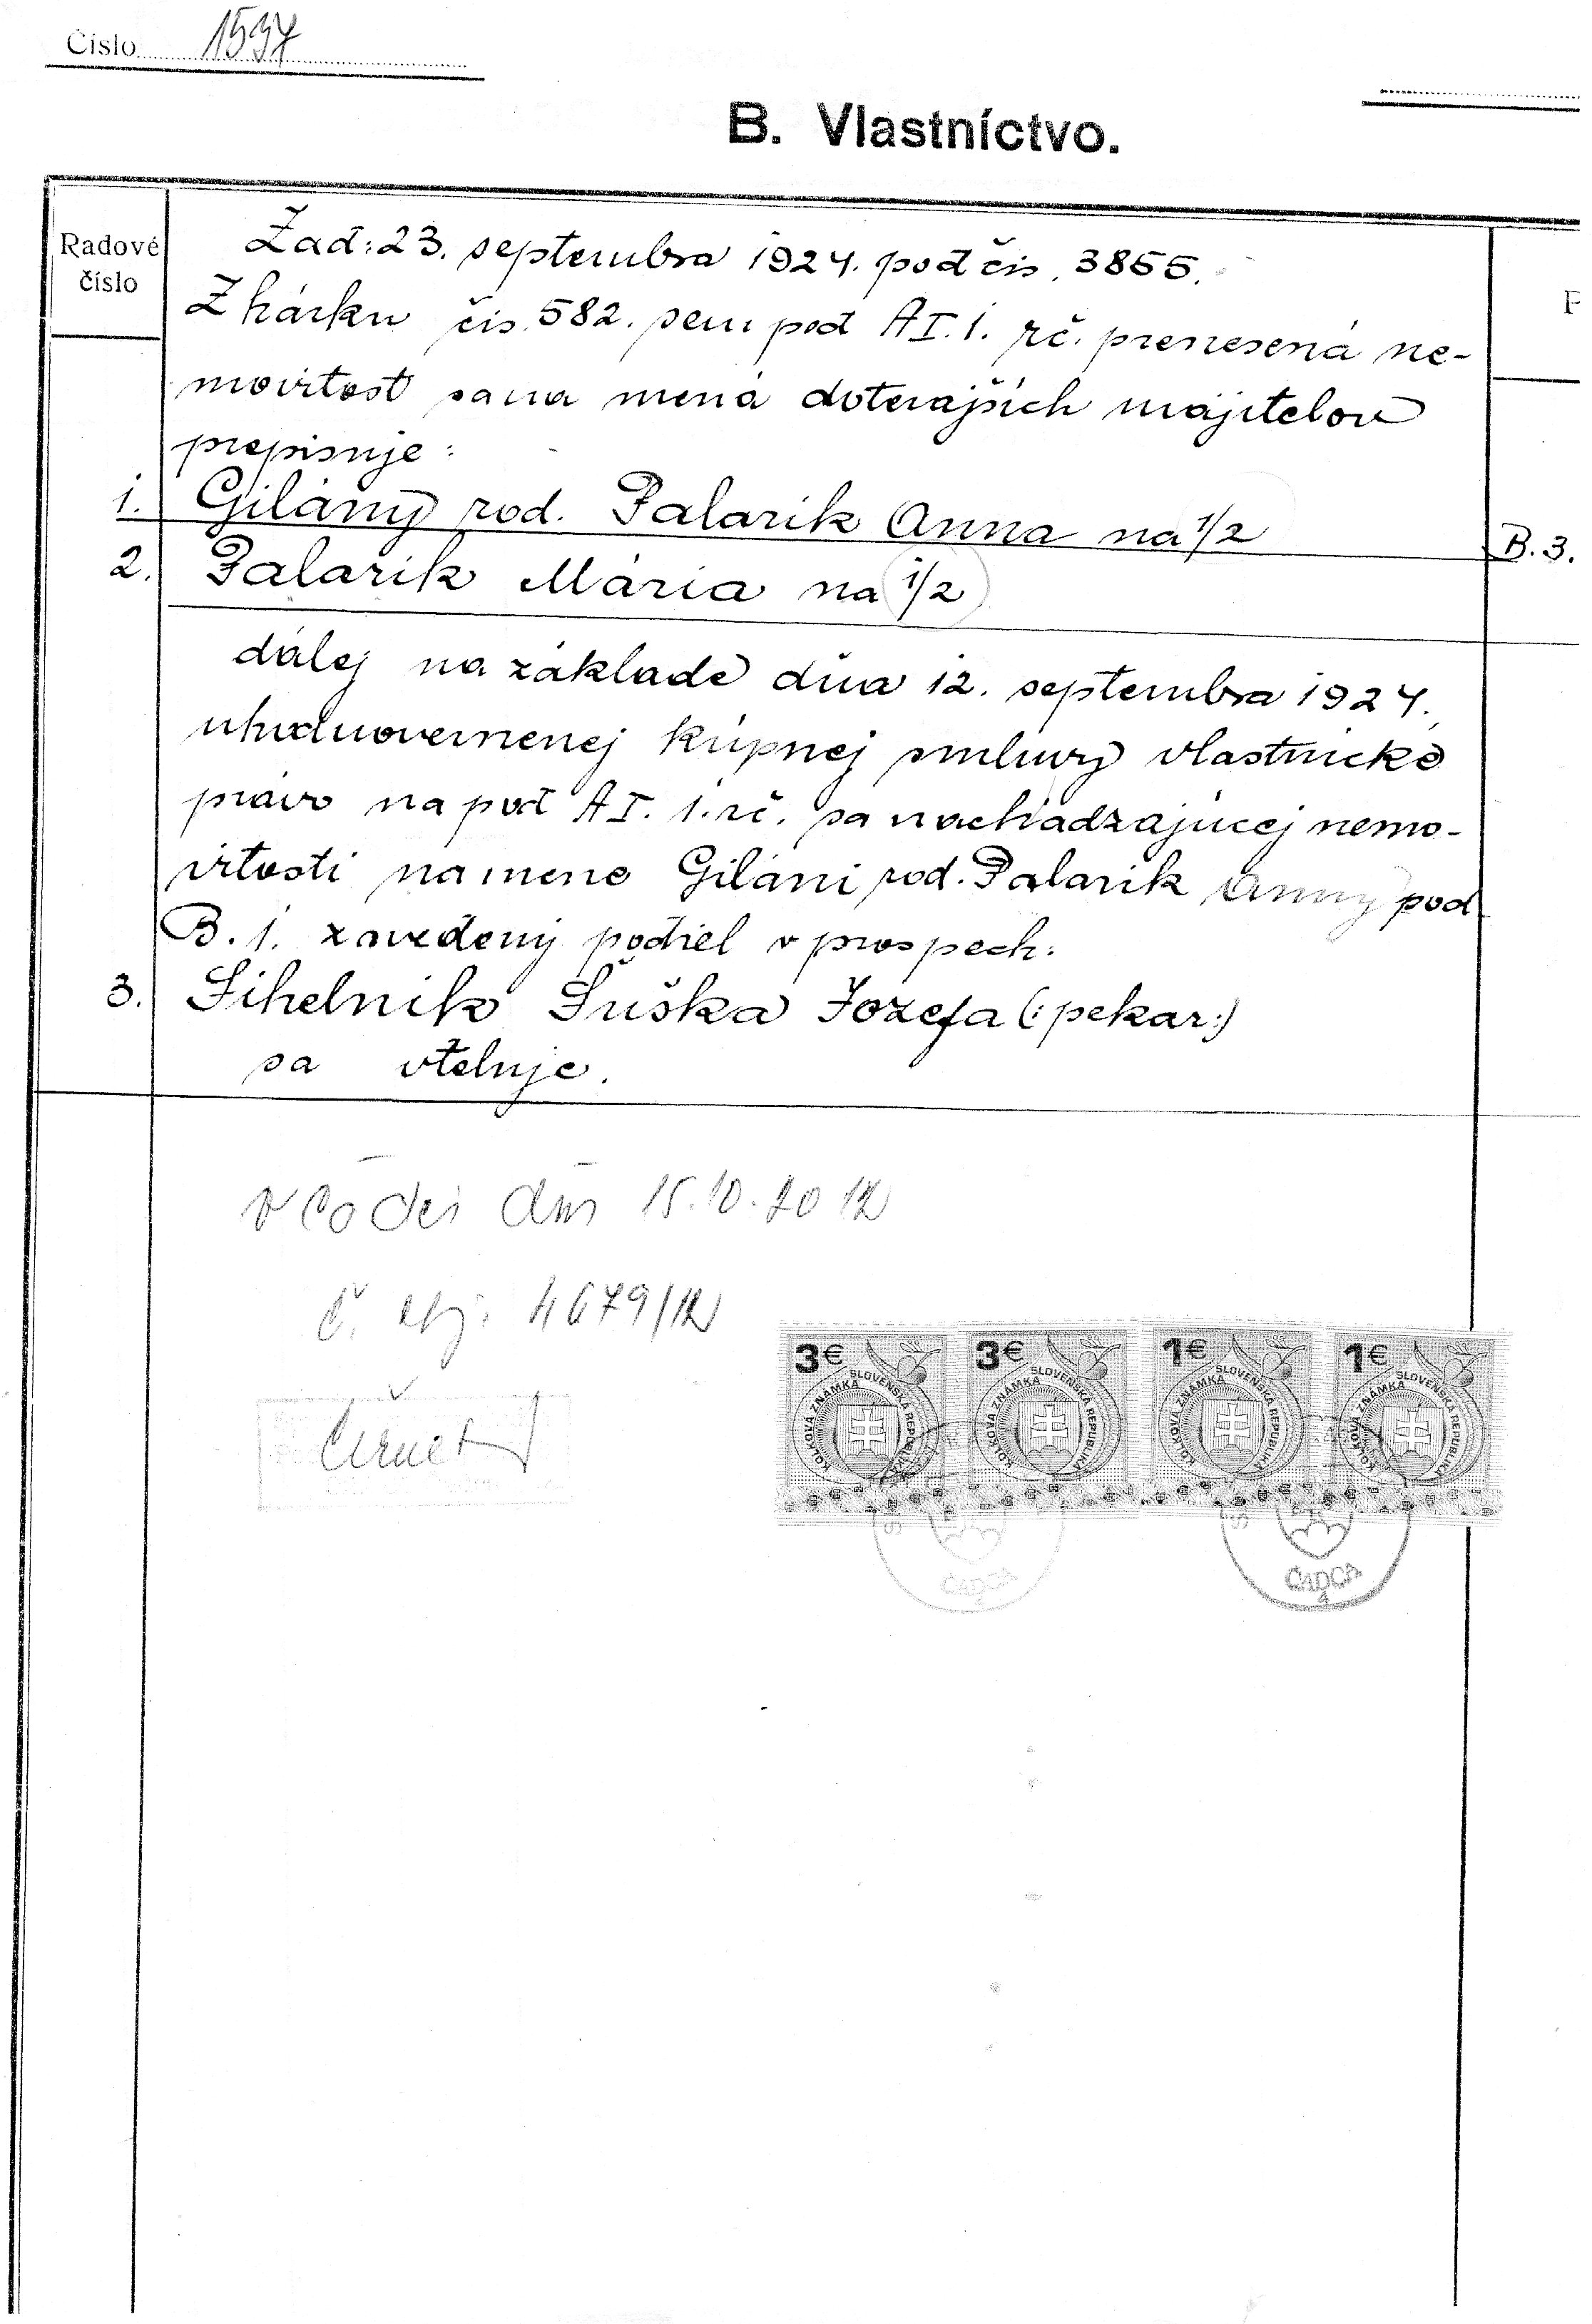 Číslo 1597
B. Vlastníctvo.
Radové
číslo
P
Žad: 23. septembra 1924. pod čís. 3855.
Z hárku čís. 582. sem pod A I. 1. rč. prenesená ne-
movitosť sa na mená doterajších majiteľov
prepisuje:
1. Gilány rod. Palarik Anna na 1/2
B. 3.
2. Palarik Mária na 1/2
ďalej na základe dňa 12. septembra 1924.
kúpnej smluvy vlastnícke
právo na pod A I. 1. rč. sa nachádzajúcej nemo-
vitosti na mene Giláni rod. Palarik Anny pod
B. 1. zavedený podiel v prospech:
3. Sihelnik Suška Jozefa (: pekar:)
sa vteľuje.
V Čadci dňa 15.10.2012
Č. obj. 4679/12
3€
KOLKOVÁ ZNÁMKA SLOVENSKÁ REPUBLIKA
3€
KOLKOVÁ ZNÁMKA SLOVENSKÁ REPUBLIKA
1€
KOLKOVÁ ZNÁMKA SLOVENSKÁ REPUBLIKA
1€
KOLKOVÁ ZNÁMKA SLOVENSKÁ REPUBLIKA
ČADCA
ČADCA
4